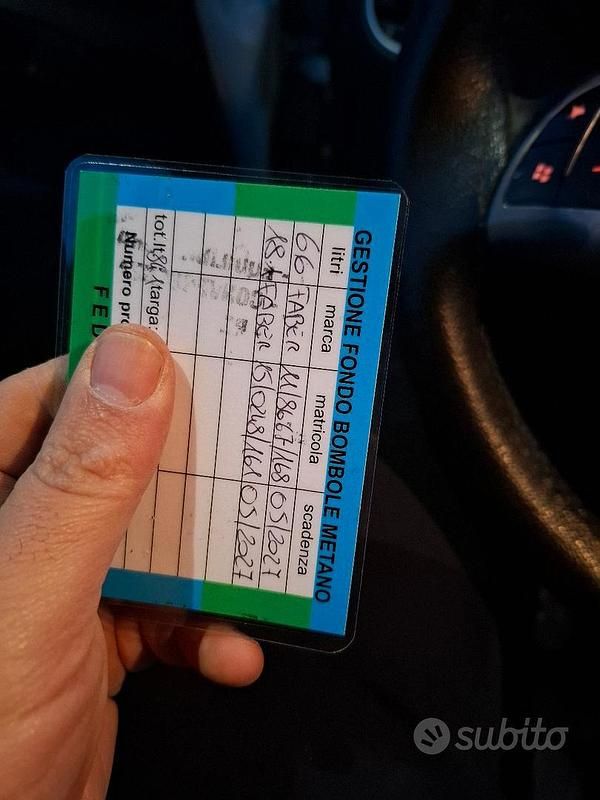 GESTIONE FONDO BOMBOLE METANO
litri marca matricola scadenza
66 FABER 11/8667/168 05/2027
18 FABER 15/0248/161 05/2027
tot.lt 84 targa:
Numero pro
FED
subito